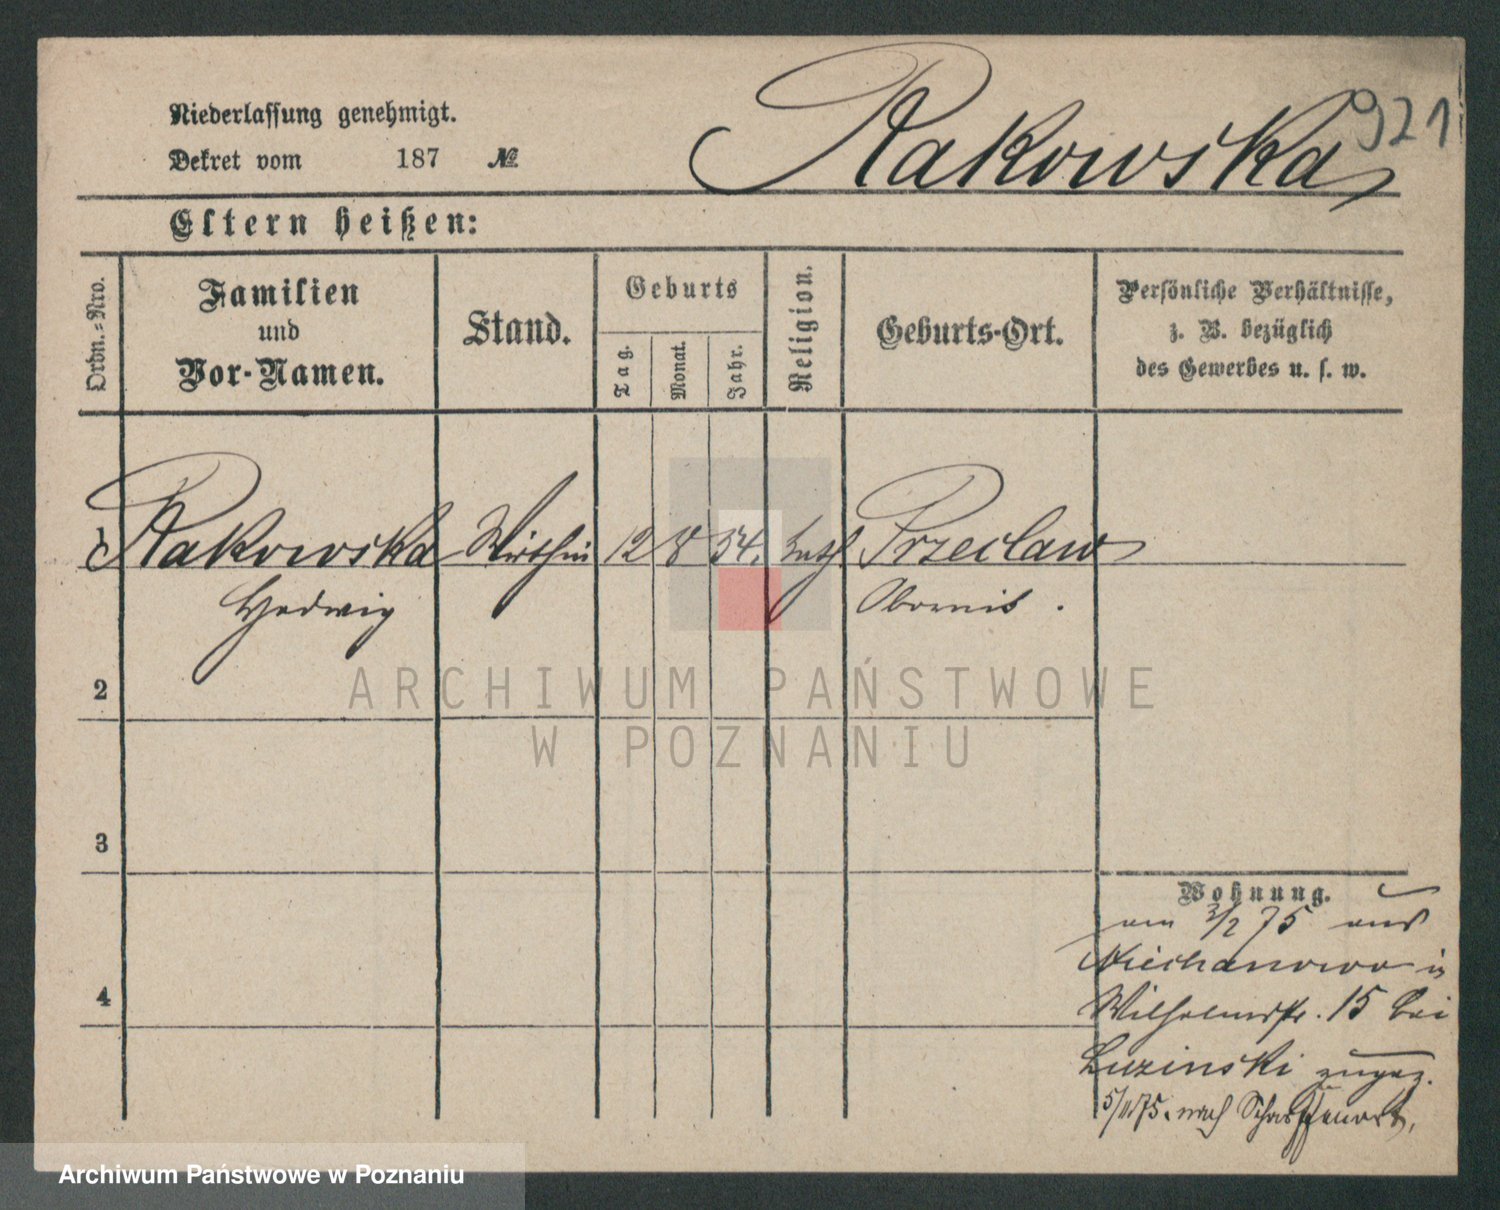 Rakowska
921
Niederlassung genehmigt.
Dekret vom 187 №
Eltern heißen:
Ordn.=Nro.
Familien
und
Vor-Namen.
Stand.
Geburts
Tag.
Monat.
Jahr.
Religion.
Geburts-Ort.
Persönliche Verhältnisse,
z. B. bezüglich
des Gewerbes u. s. w.
1 Rakowska Wirthin 12 8 34. kath. Przeclaw
Hedwig Obornik.
2
3
4
Wohnung.
am 3/2 75 aus
Niechanowo in
Wilhelmstr. 15 bei
Luzinski zugez.
75. nach Scharffenort,
ARCHIWUM PAŃSTWOWE
W POZNANIU
Archiwum Państwowe w Poznaniu